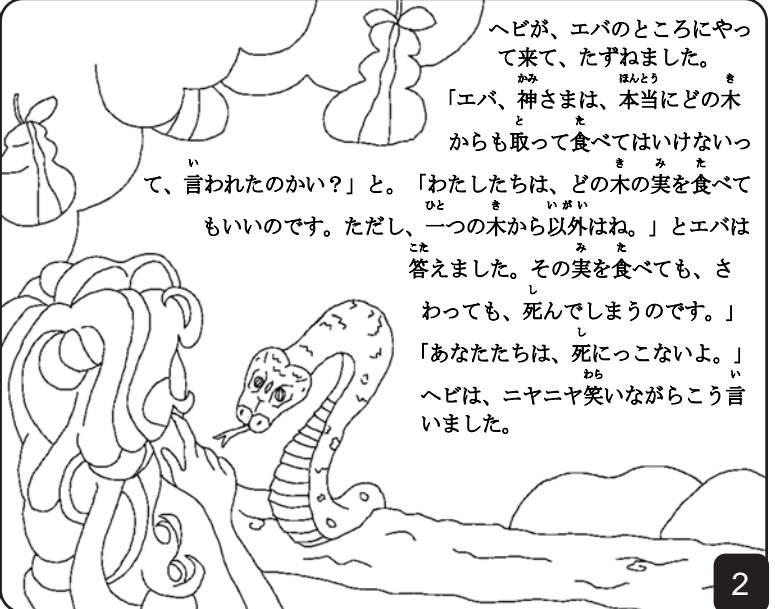 ヘビが、エバのところにやっ
て来て、たずねました。
「エバ、神さまは、本当にどの木
からも取って食べてはいけないっ
て、言われたのかい？」と。「わたしたちは、どの木の実を食べて
もいいのです。ただし、一つの木から以外はね。」とエバは
答えました。その実を食べても、さ
わっても、死んでしまうのです。」
「あなたたちは、死にっこないよ。」
ヘビは、ニヤニヤ笑いながらこう言
いました。
2